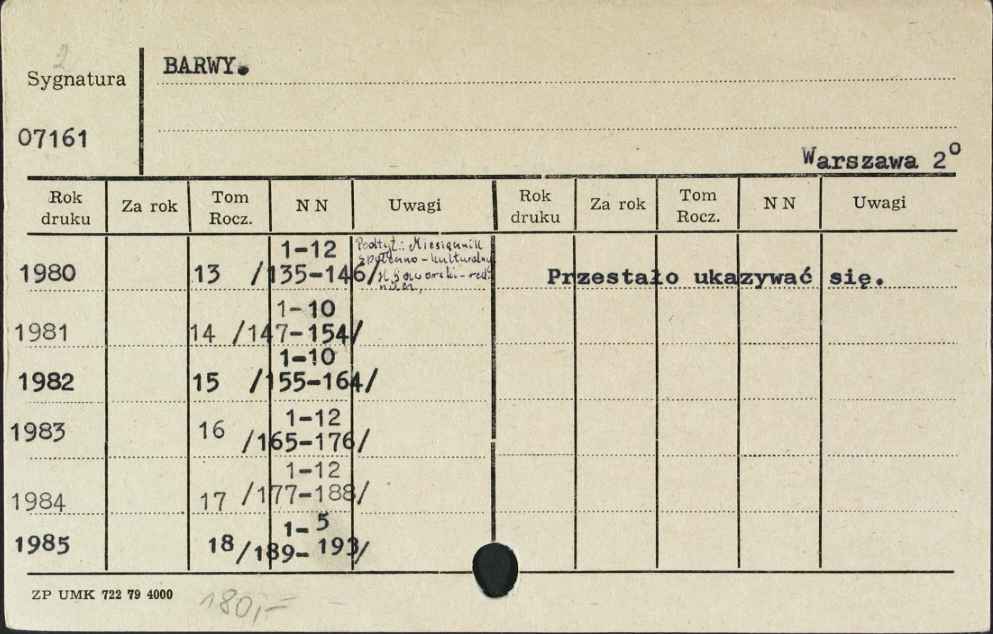 2
BARWY.
Sygnatura
07161
Warszawa 2º
Rok druku Za rok Tom Rocz. N N Uwagi Rok druku Za rok Tom Rocz. N N Uwagi
1980 13 1-12 /135-146/ Podtyt.: Miesięcznik Przestało ukazywać się.
społeczno-kulturalny
1981 14 1-10 /147-154/
1982 15 1-10 /155-164/
1983 16 1-12 /165-176/
1984 17 1-12 /177-188/
1985 18 1-5 /189-193/
ZP UMK 722 79 4000
180,-